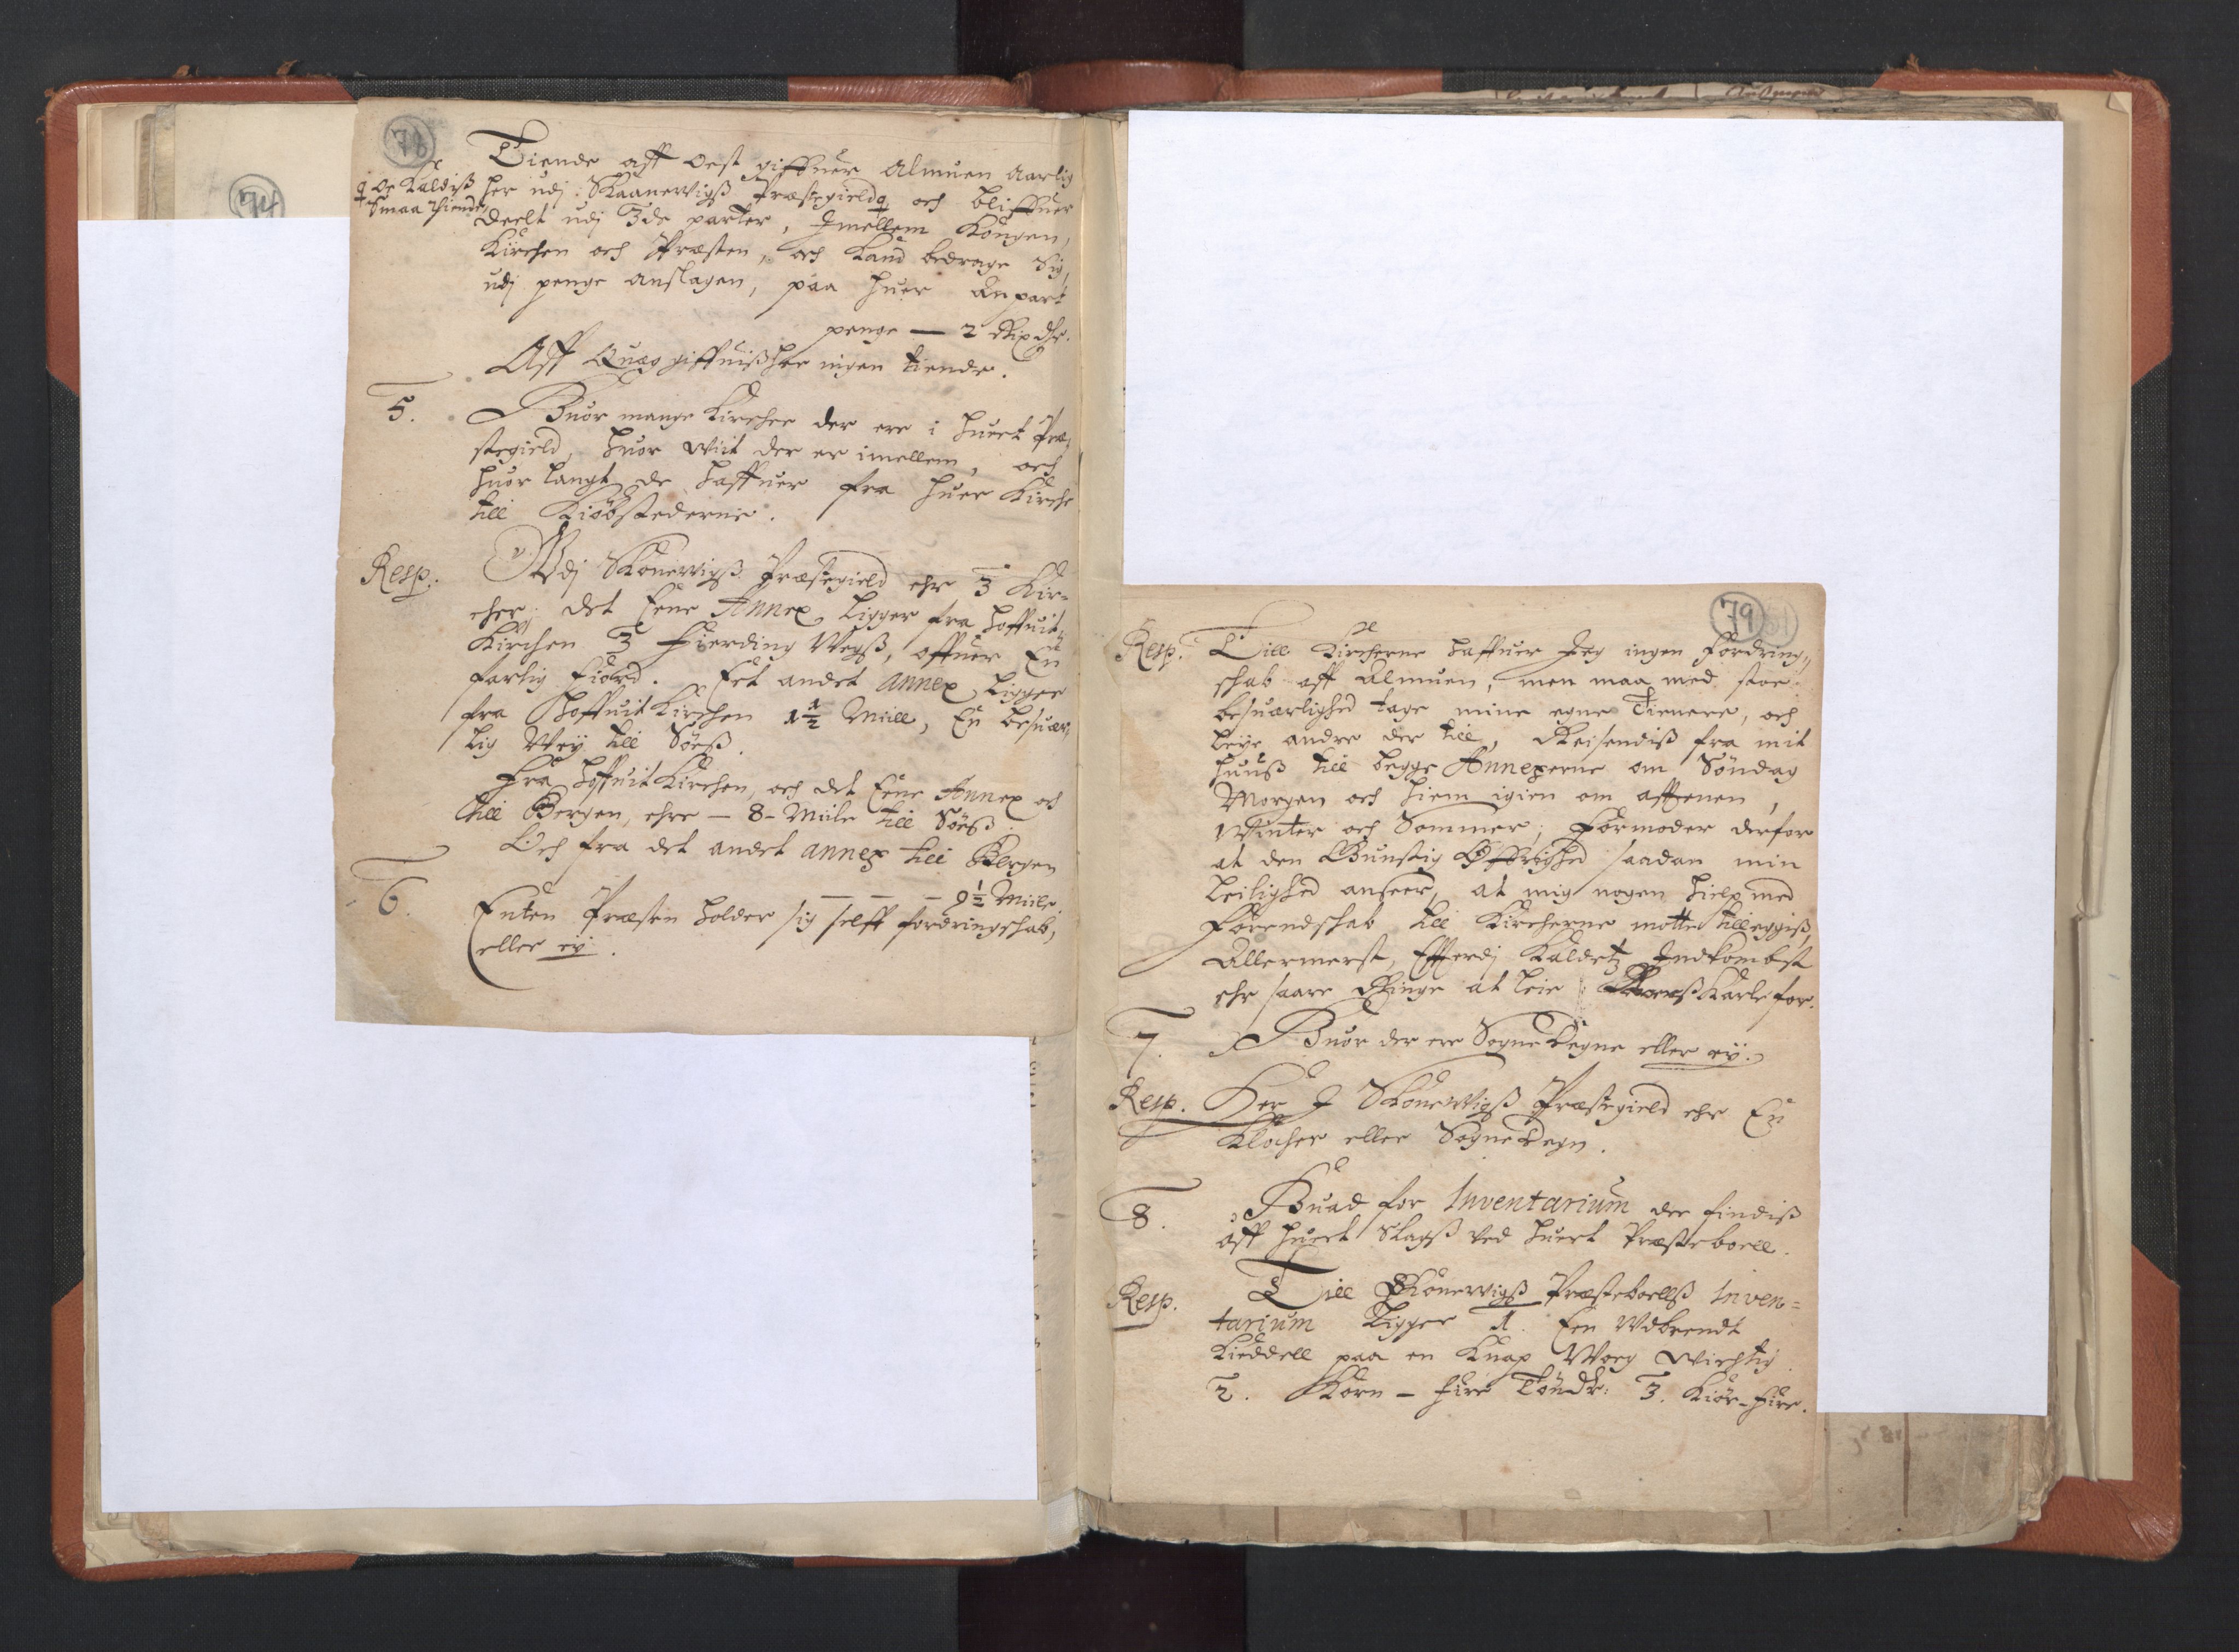 78
74
Tiende aff Ost giffuer Almuen Aarlig
her udj Skaanewigß Præstegield, och bliffuer
och kaldiß
Smaa Tiende,
deelt udj 3de parter, Imellem Kongen,
Kirchen och Præsten, och kand bedrage sig,
udj penge anslagen, paa huer Anpart
penge — 2 Rixdlr.
Aff Quæg giffuiß her ingen tiende.
5. Huor mange Kircher der ere i huert Præ-
stegield, huor wiit der er imellem, och
huor langt de haffuer fra huer Kirche
till Kiöbstederne.
Resp. Vdj Skonewigß Præstegield ehr 3 Kir-
cher; det Eene Annex ligger fra hoffuit
Kirchen 3 Fierding Wegß, offuer En
farlig Fiord. Eet andet Annex ligger
fra Hoffuit Kirchen 1½ Miill, En besuær-
lig Wey till Söeß.
Fra Hoffuit Kirchen, och det Eene Annex och
till Bergen, ehre — 8 - Miile till Söeß.
Och fra det andet annex till Bergen
— — — 9½ Miile.
6. Enten Præsten holder sig selff fordringschab,
eller ey.
79
Resp. Till Kircherne haffuer Jeg ingen Fordring-
schab aff Almuen, men maa med stor
besuærlighed tage mine egne Tienere, och
leye andre der till, Reisendiß fra mit
huuß till begge Annexerne om Söndag
Morgen och hiem igien om afftenen,
Winter och Sommer; Formoder derfor
at den Gunstig Øffrighed saadan min
leilighed anseer, at mig nogen hielp med
Förendschab till Kircherne motte tilleggiß,
Allermeest, Efferdj Kaldetz Indkombst
ehr saare Ringe at leie Karle for.
7. Huor der ere Sogne Degne eller ey.
Resp. Her I Skonewigß Præstegield ehr En
Klocher eller Sogne Degn.
8. Huad for Inventarium der findiß
aff huert Slagß ved huert Præsteboell.
Resp. Till Skonewigß Præsteboellß Inven=
tarium ligger 1. Een Wdbrendt
Kieddell paa en Knap Woeg wichtig.
2. Korn - Fire Tönder: 3. Kiör - Fire.